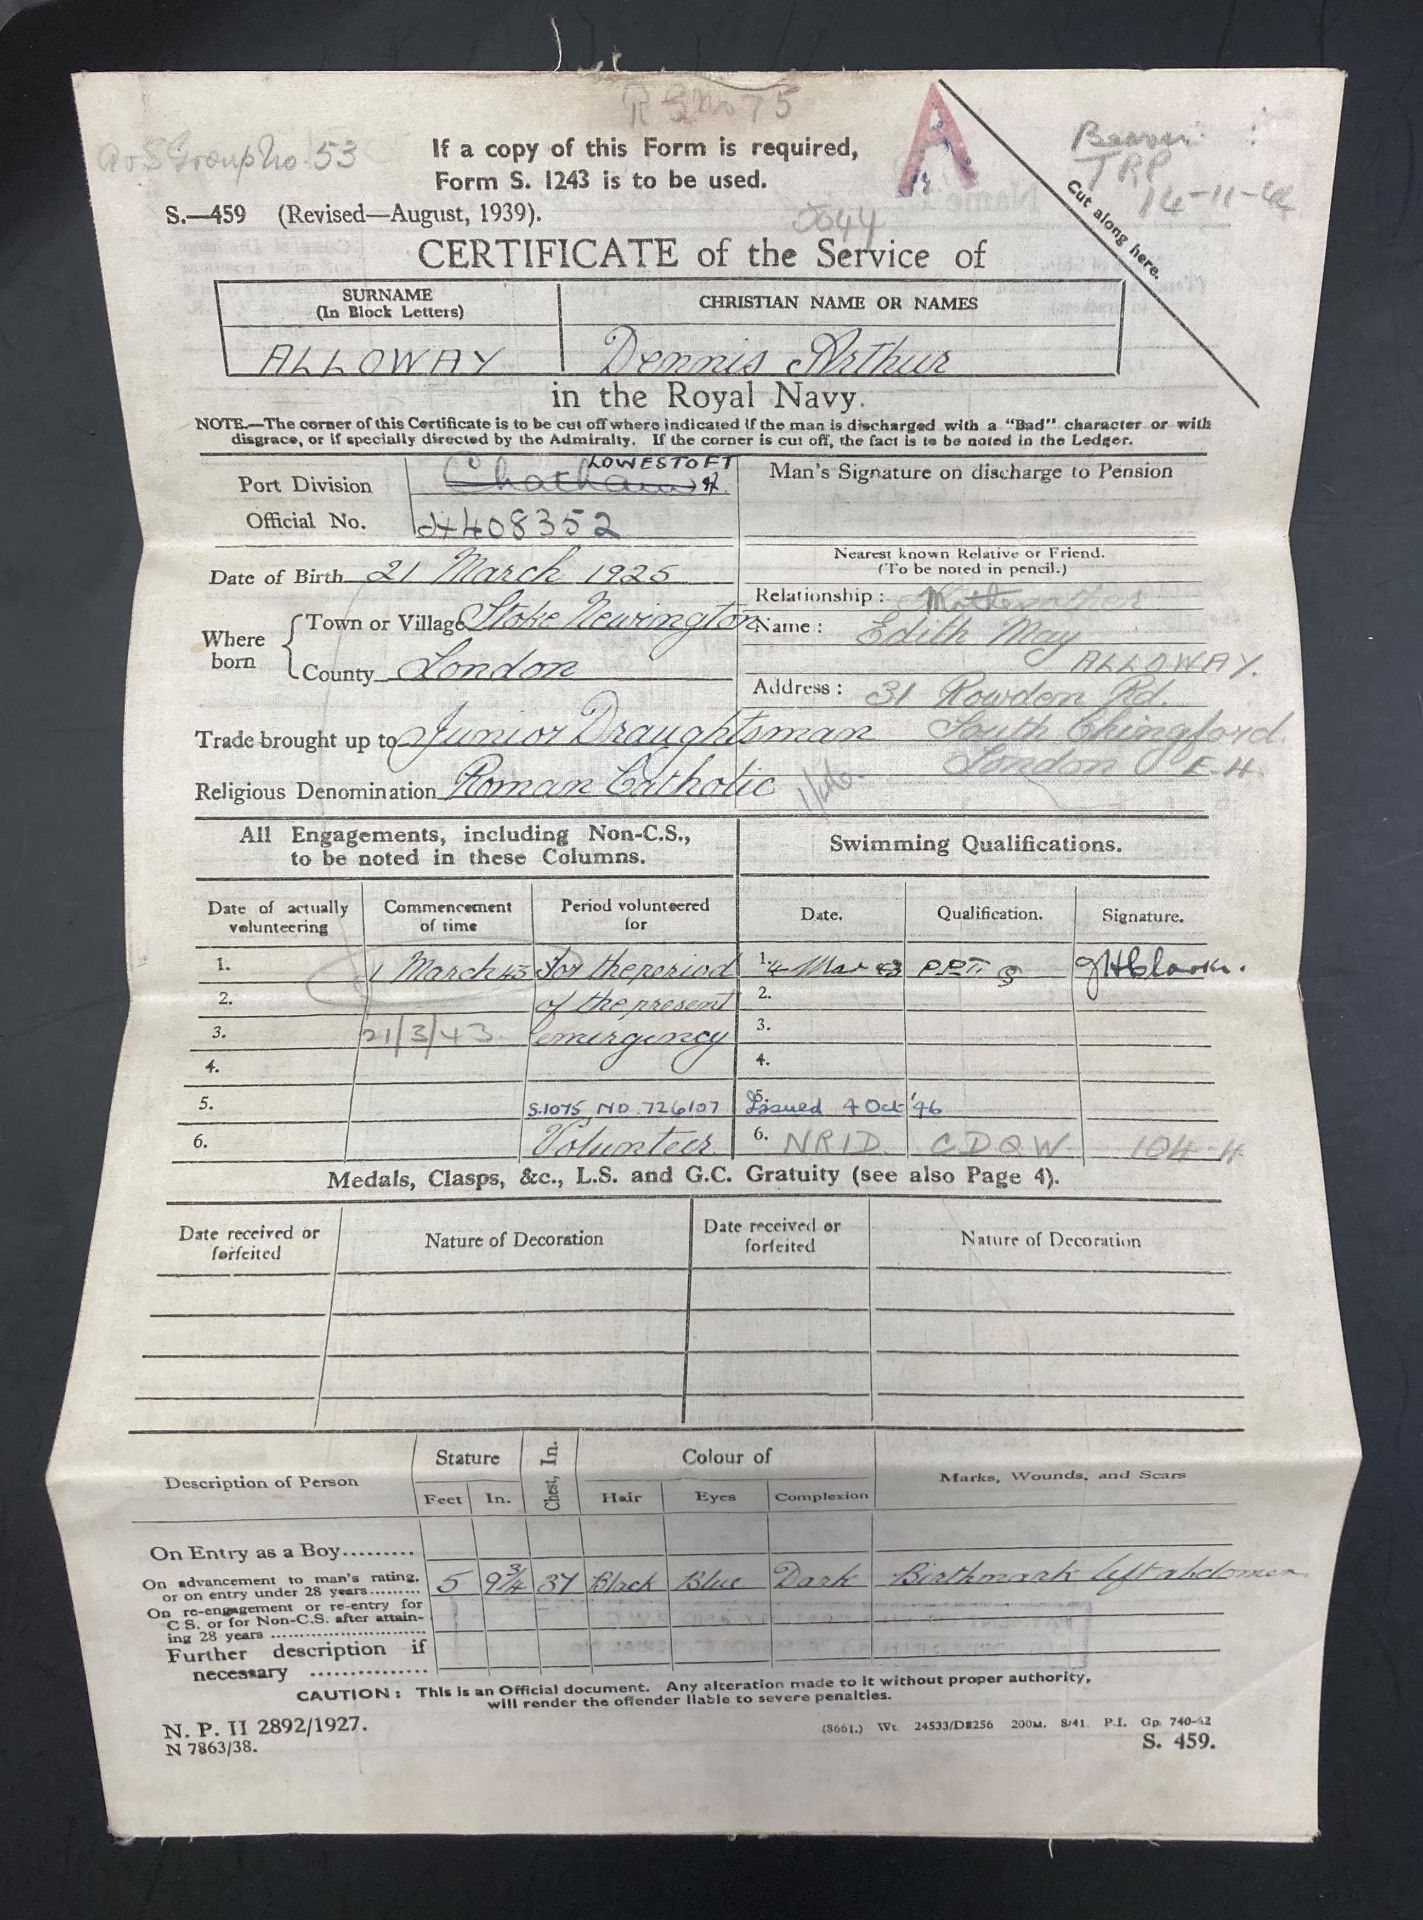 R G No 75
A & S Group No. 53
If a copy of this Form is required,
Form S. 1243 is to be used.
A
TRP
14-11-44
Cut along here.
S.—459 (Revised—August, 1939).
CERTIFICATE of the Service of
SURNAME
(In Block Letters)
CHRISTIAN NAME OR NAMES
ALLOWAY
Dennis Arthur
in the Royal Navy.
NOTE.—The corner of this Certificate is to be cut off where indicated if the man is discharged with a "Bad" character or with
disgrace, or if specially directed by the Admiralty. If the corner is cut off, the fact is to be noted in the Ledger.
LOWESTOFT
Port Division Chatham
Official No. 408352
Man's Signature on discharge to Pension
Date of Birth 21 March 1925
Where born
Town or Village Stoke Newington
County London
Trade brought up to Junior Draughtsman
Religious Denomination Roman Catholic
Nearest known Relative or Friend.
(To be noted in pencil.)
Relationship: Mother
Name: Edith May
ALLOWAY.
Address: 31 Rowden Rd.
South Chingford.
London E.4.
All Engagements, including Non-C.S.,
to be noted in these Columns.
Swimming Qualifications.
Date of actually volunteering
Commencement of time
Period volunteered for
Date.
Qualification.
Signature.
1. 1 March 43 For the period
2. of the present
3. 21/3/43 emergency
4.
5. S.1075 NO 726107
6. Volunteer
1. 4 Mar 43 P.P.T.
2.
3.
4.
5. Issued 4 Oct '46
6. NRID CDQW 104-4
Medals, Clasps, &c., L.S. and G.C. Gratuity (see also Page 4).
Date received or forfeited
Nature of Decoration
Date received or forfeited
Nature of Decoration
Description of Person
Stature
Feet
In.
Chest, In.
Colour of
Hair
Eyes
Complexion
Marks, Wounds, and Scars
On Entry as a Boy.........
On advancement to man's rating,
or on entry under 28 years.........
5 9¾ 37 Black Blue Dark Birthmark left abdomen
On re-engagement or re-entry for
C S. or for Non-C.S. after attain-
ing 28 years ..............................
Further description if
necessary ...............
CAUTION: This is an Official document. Any alteration made to it without proper authority,
will render the offender liable to severe penalties.
N. P. II 2892/1927.
N 7863/38.
(8661.) Wt. 24533/D8256 200M. 8/41. P.I. Gp. 740-62
S. 459.